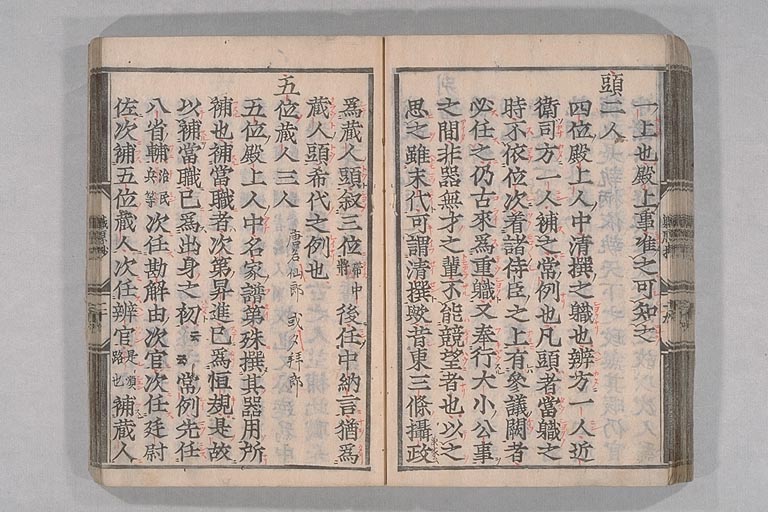 一上也殿上事唯之可知之
頭二人
四位殿上人中清撰之職也辨方一人近
衛司方一人補之常例也凡頭者當職之
時不依位次着諸侍臣之上有參議闕者
必任之仍古來爲重職又奉行大小公事
之間非器無才之輩不能競望者也以之
思之雖末代可謂清撰歟昔東三條攝政
爲藏人頭叙三位中將後任中納言猶爲
藏人頭希代之例也
五位藏人三人 唐名仙郎 或夕拜郎
五位殿上人中名家譜第殊撰其器用所
補也補當職者次第昇進已爲恒規是故
以補當職已爲出身之初 常例先任
八省輔治民兵等次任勘解由次官次任廷尉
佐次補五位藏人次任辨官是順路也補藏人